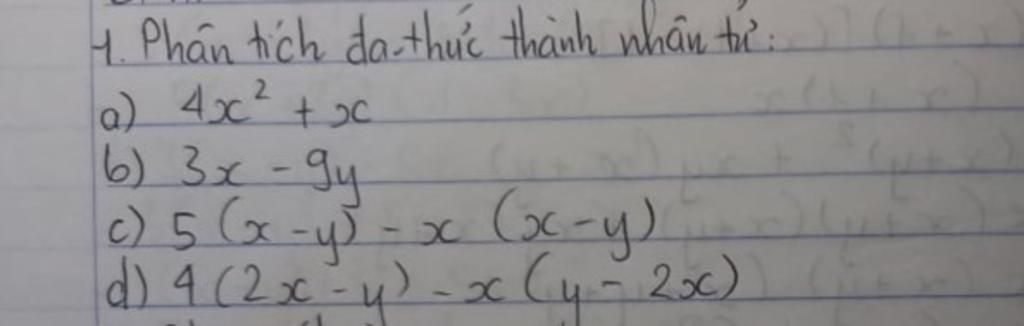 1. Phân tích đa thức thành nhân tử:
a) 4x² + x
b) 3x - 9y
c) 5 (x - y) - x (x - y)
d) 4 (2x - y) - x (y - 2x)